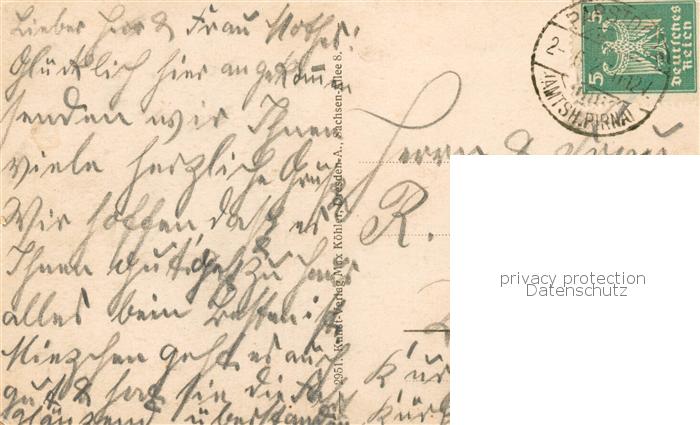 Lieber Herr & Frau Mothes!
Glücklich hier angekommen
senden wir Ihnen
viele herzliche Grüße
Wir hoffen daß es
Ihnen gut geht zu Hause
alles beim Besten ist
Miezchen geht es auch
gut & hat sie die
glänzend überstanden
2951. Kunst-Verlag Max Köhler, Dresden-A., Sachsen-Allee 8.
5 5
Deutsches
Reich
(AMTSH. PIRNA)
Herrn & Frau
R.
privacy protection
Datenschutz